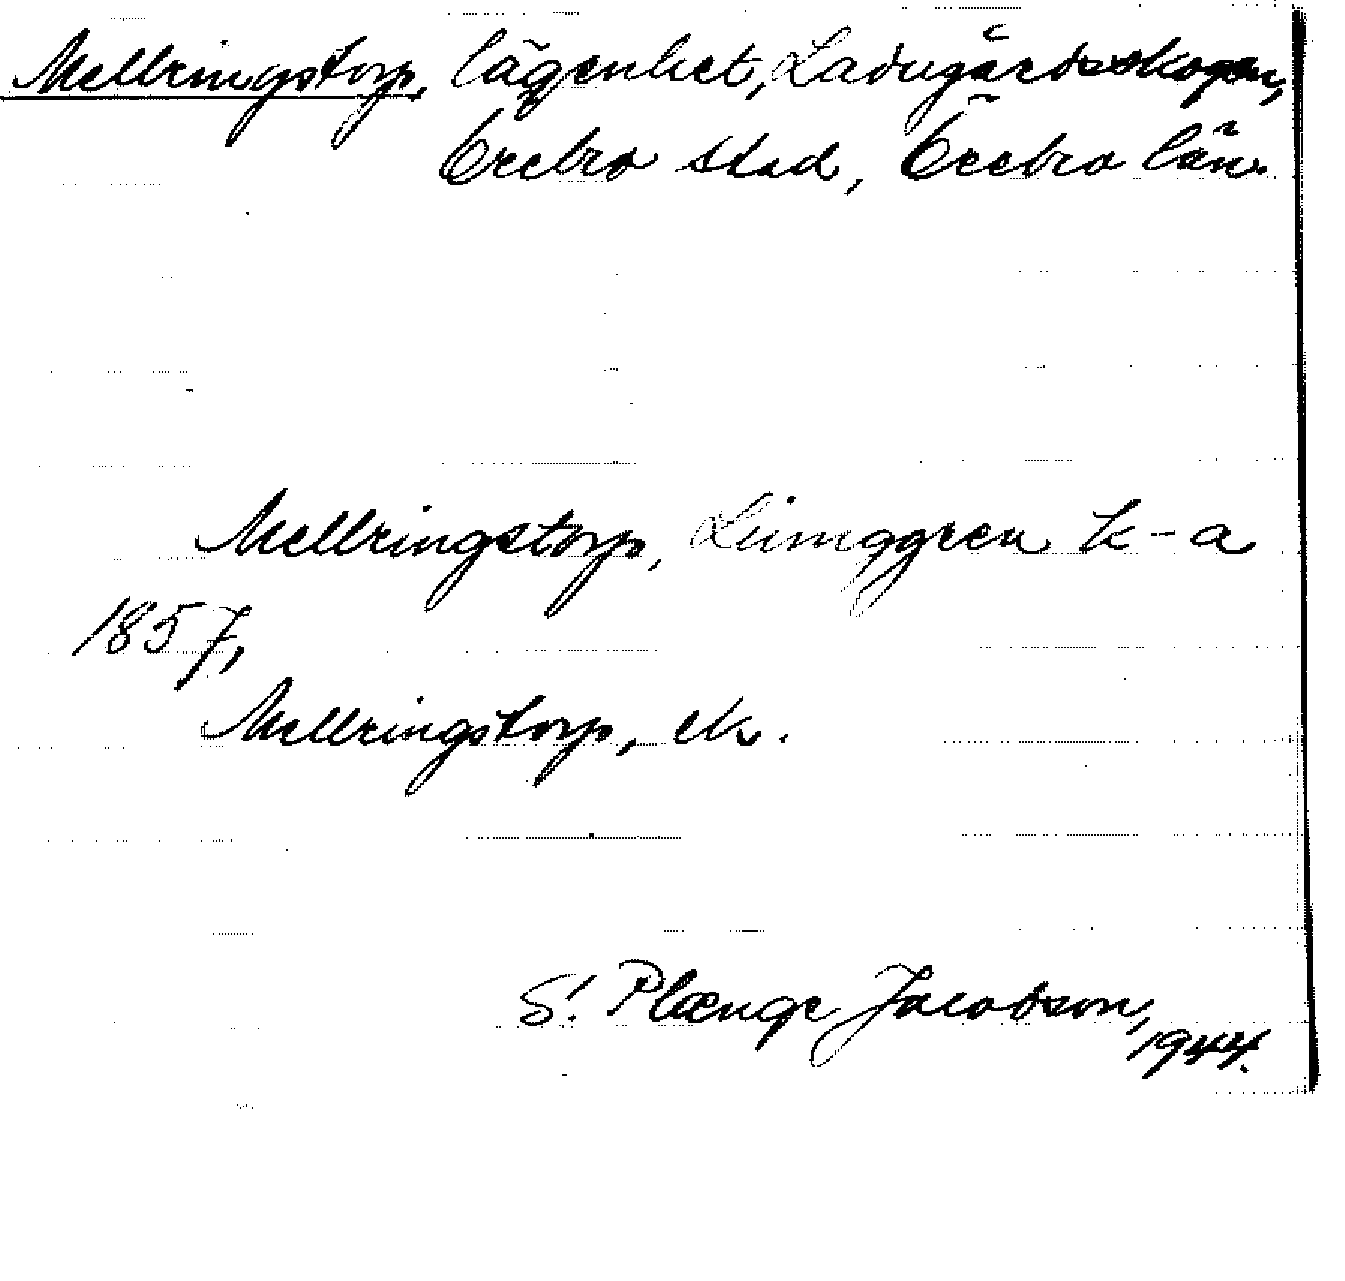 Mellringstorp, lägenhet, Ladugårdsskogen,
Örebro stad, Örebro län.
Mellringstorp, Ljunggren k-a
1857,
Mellringstorp, ek.
S. Plænge Jacobson,
1944.